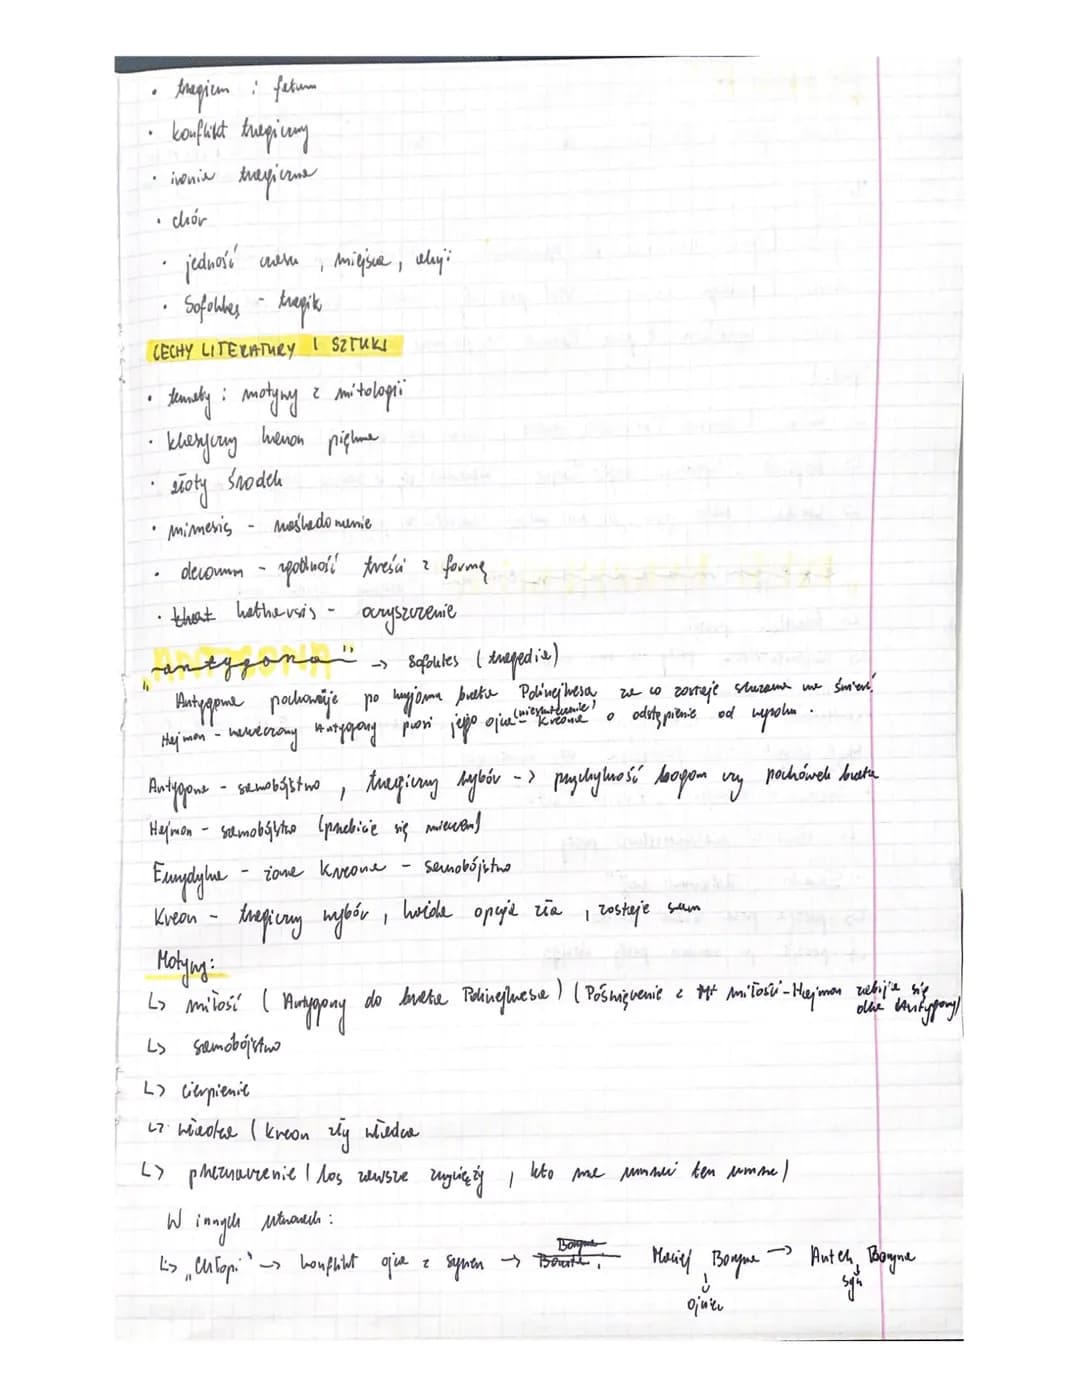 • tragizm i fatum
• konflikt tragiczny
• ironia tragiczna
• chór
• jedność czasu, miejsca, akcji
• Sofokles - tragik
CECHY LITERATURY I SZTUKI
• tematy i motywy z mitologii
• klasyczny kanon piękna
• złoty środek
• mimesis - naśladowanie
• decorum - zgodność treści z formą
• katharsis - oczyszczenie
"antygona" -> Sofokles (tragedia)
Antygona pochowuje po kryjomu brata Polinejkesa za co zostaje skazana na śmierć.
Hejmon - narzeczony Antygony prosi jego ojca (nieskutecznie) - Kreona o odstępienie od wyroku.
Antygona - samobójstwo, tragiczny wybór -> przychylność bogom czy pochówek brata
Hejmon - samobójstwo (przebicie się mieczem)
Eurydyka - żona Kreona - samobójstwo
Kreon - tragiczny wybór, każda opcja zła, zostaje sam
Motywy:
↳ miłość (Antygony do brata Polinejkesa) (Poświęcenie z miłości - Hajmon zabija się dla Antygony)
↳ samobójstwo
↳ cierpienie
↳ władca (Kreon zły władca
↳ przeznaczenie (los zawsze zwycięży, kto ma umrzeć ten umrze)
W innych utworach:
↳ „Chłopi" -> konflikt ojca z synem -> Maciej Boryna -> Antek Boryna
ojciec
syn